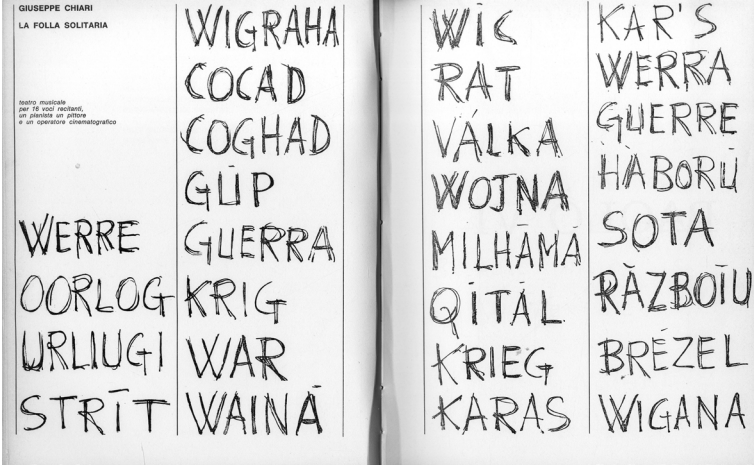 GIUSEPPE CHIARI
LA FOLLA SOLITARIA
teatro musicale
per 16 voci recitanti,
un pianista un pittore
e un operatore cinematografico
WERRE
OORLOG
URLIUGI
STRĪT
WIGRAHA
COCAD
COGHAD
GŪP
GUERRA
KRIG
WAR
WAINĀ
WIC
RAT
VÁLKA
WOJNA
MILHĀMĀ
QITĀL
KRIEG
KARAS
KAR'S
WERRA
GUERRE
HÀBORÚ
SOTA
RĂZBOIU
BRÉZEL
WIGANA